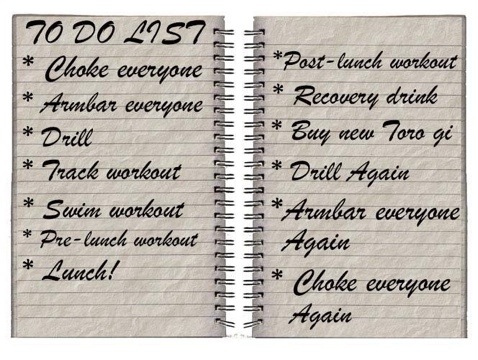 TO DO LIST
* Choke everyone
* Armbar everyone
* Drill
* Track workout
* Swim workout
* Pre-lunch workout
* Lunch!
*Post-lunch workout
* Recovery drink
* Buy new Toro gi
* Drill Again
*Armbar everyone
Again
* Choke everyone
Again